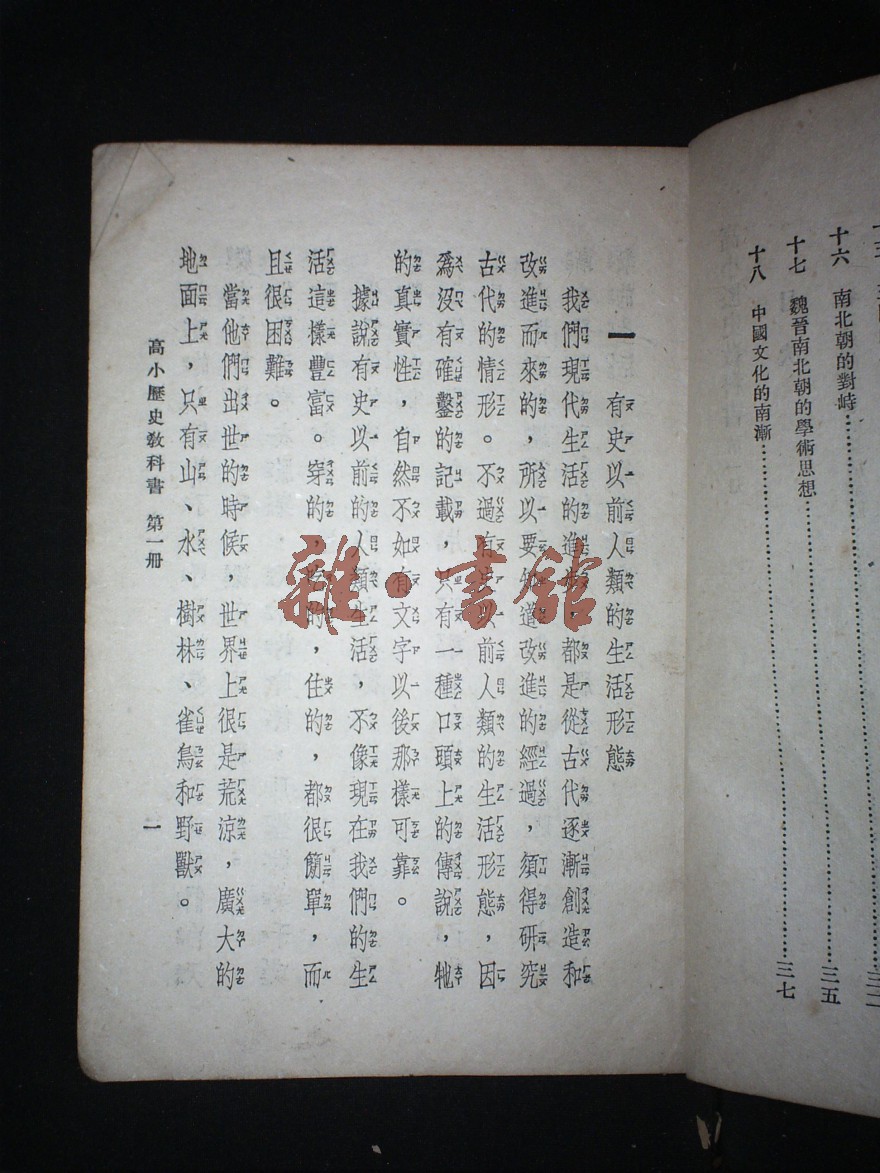 十六 南北朝的對峙……三五
十七 魏晉南北朝的學術思想……三七
十八 中國文化的南漸……
一 有史以前人類的生活形態
我們現代生活的進步，都是從古代逐漸創造和
改進而來的，所以要知道改進的經過，須得研究
古代的情形。不過有史以前人類的生活形態，因
爲沒有確鑿的記載，只有一種口頭上的傳說，牠
的真實性，自然不如有文字以後那樣可靠。
據說有史以前的人類生活，不像現在我們的生
活這樣豐富。穿的，吃的，住的，都很簡單，而
且很困難。
當他們出世的時候，世界上很是荒涼，廣大的
地面上，只有山、水、樹林、雀鳥和野獸。
高小歷史教科書 第一册 一
雜·書館